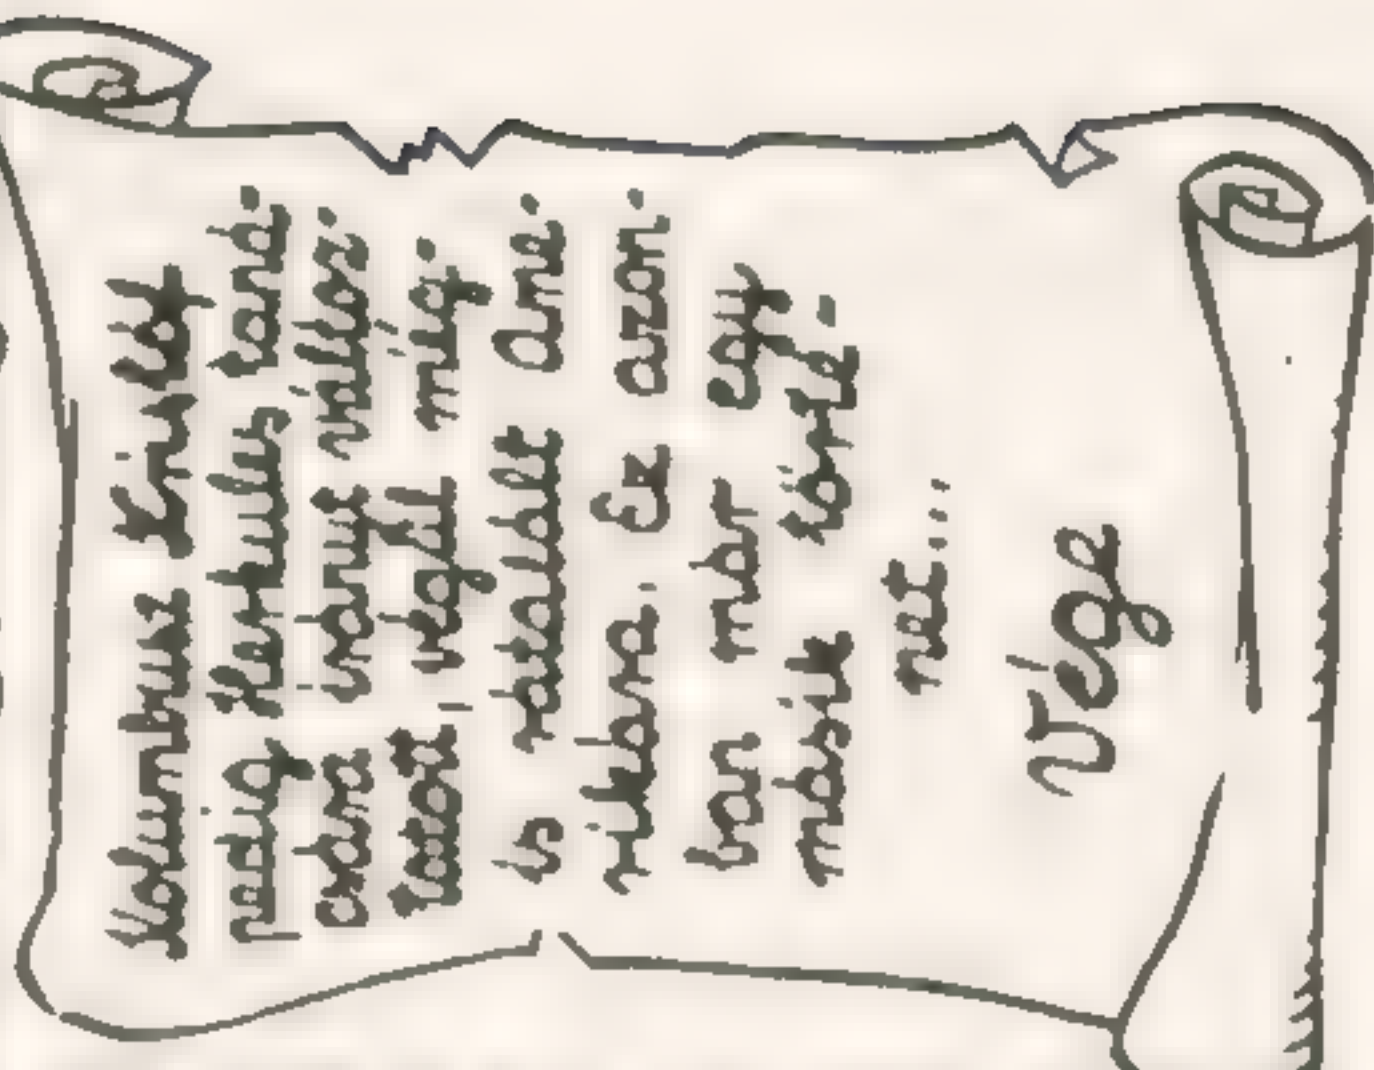 Kolumbusz Kristóf
pedig Herkules taná-
csára irányt változ-
tatott, végül még-
is rátalált Ame-
rikára. Ez azon-
ban már egy
másik törté-
net...
Vége